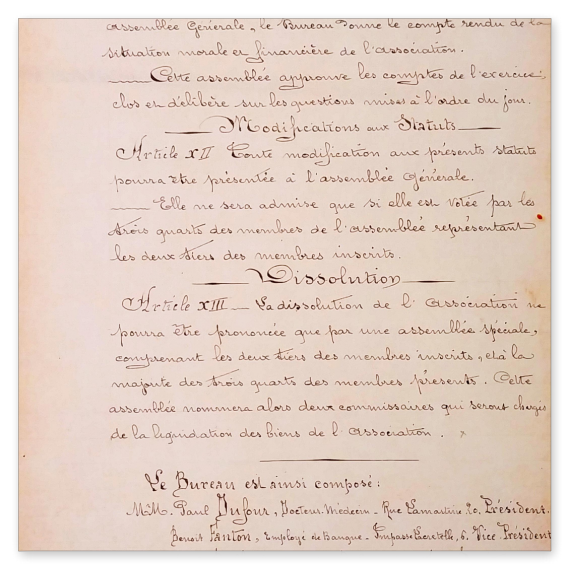 assemblée Générale, le Bureau donne le compte rendu de la
situation morale et financière de l'association.
Cette assemblée approuve les comptes de l'exercice
clos et délibère sur les questions mises à l'ordre du jour.
Modifications aux Statuts
Article XII Toute modification aux présents statuts
pourra être présentée à l'assemblée Générale.
Elle ne sera admise que si elle est votée par les
trois quarts des membres de l'assemblée représentant
les deux tiers des membres inscrits.
Dissolution
Article XIII — La dissolution de l'Association ne
pourra être prononcée que par une assemblée spéciale,
comprenant les deux tiers des membres inscrits, et à la
majoute des trois quarts des membres présents. Cette
assemblée nommera alors deux commissaires qui seront chargés
de la liquidation des biens de l'Association.
Le Bureau est ainsi composé:
MM. Paul Dufour, Docteur-Médecin - Rue Lamartine 20, Président.
Benoit Fanton, Employé de Banque - Impasse Lacretelle, 6. Vice-Président